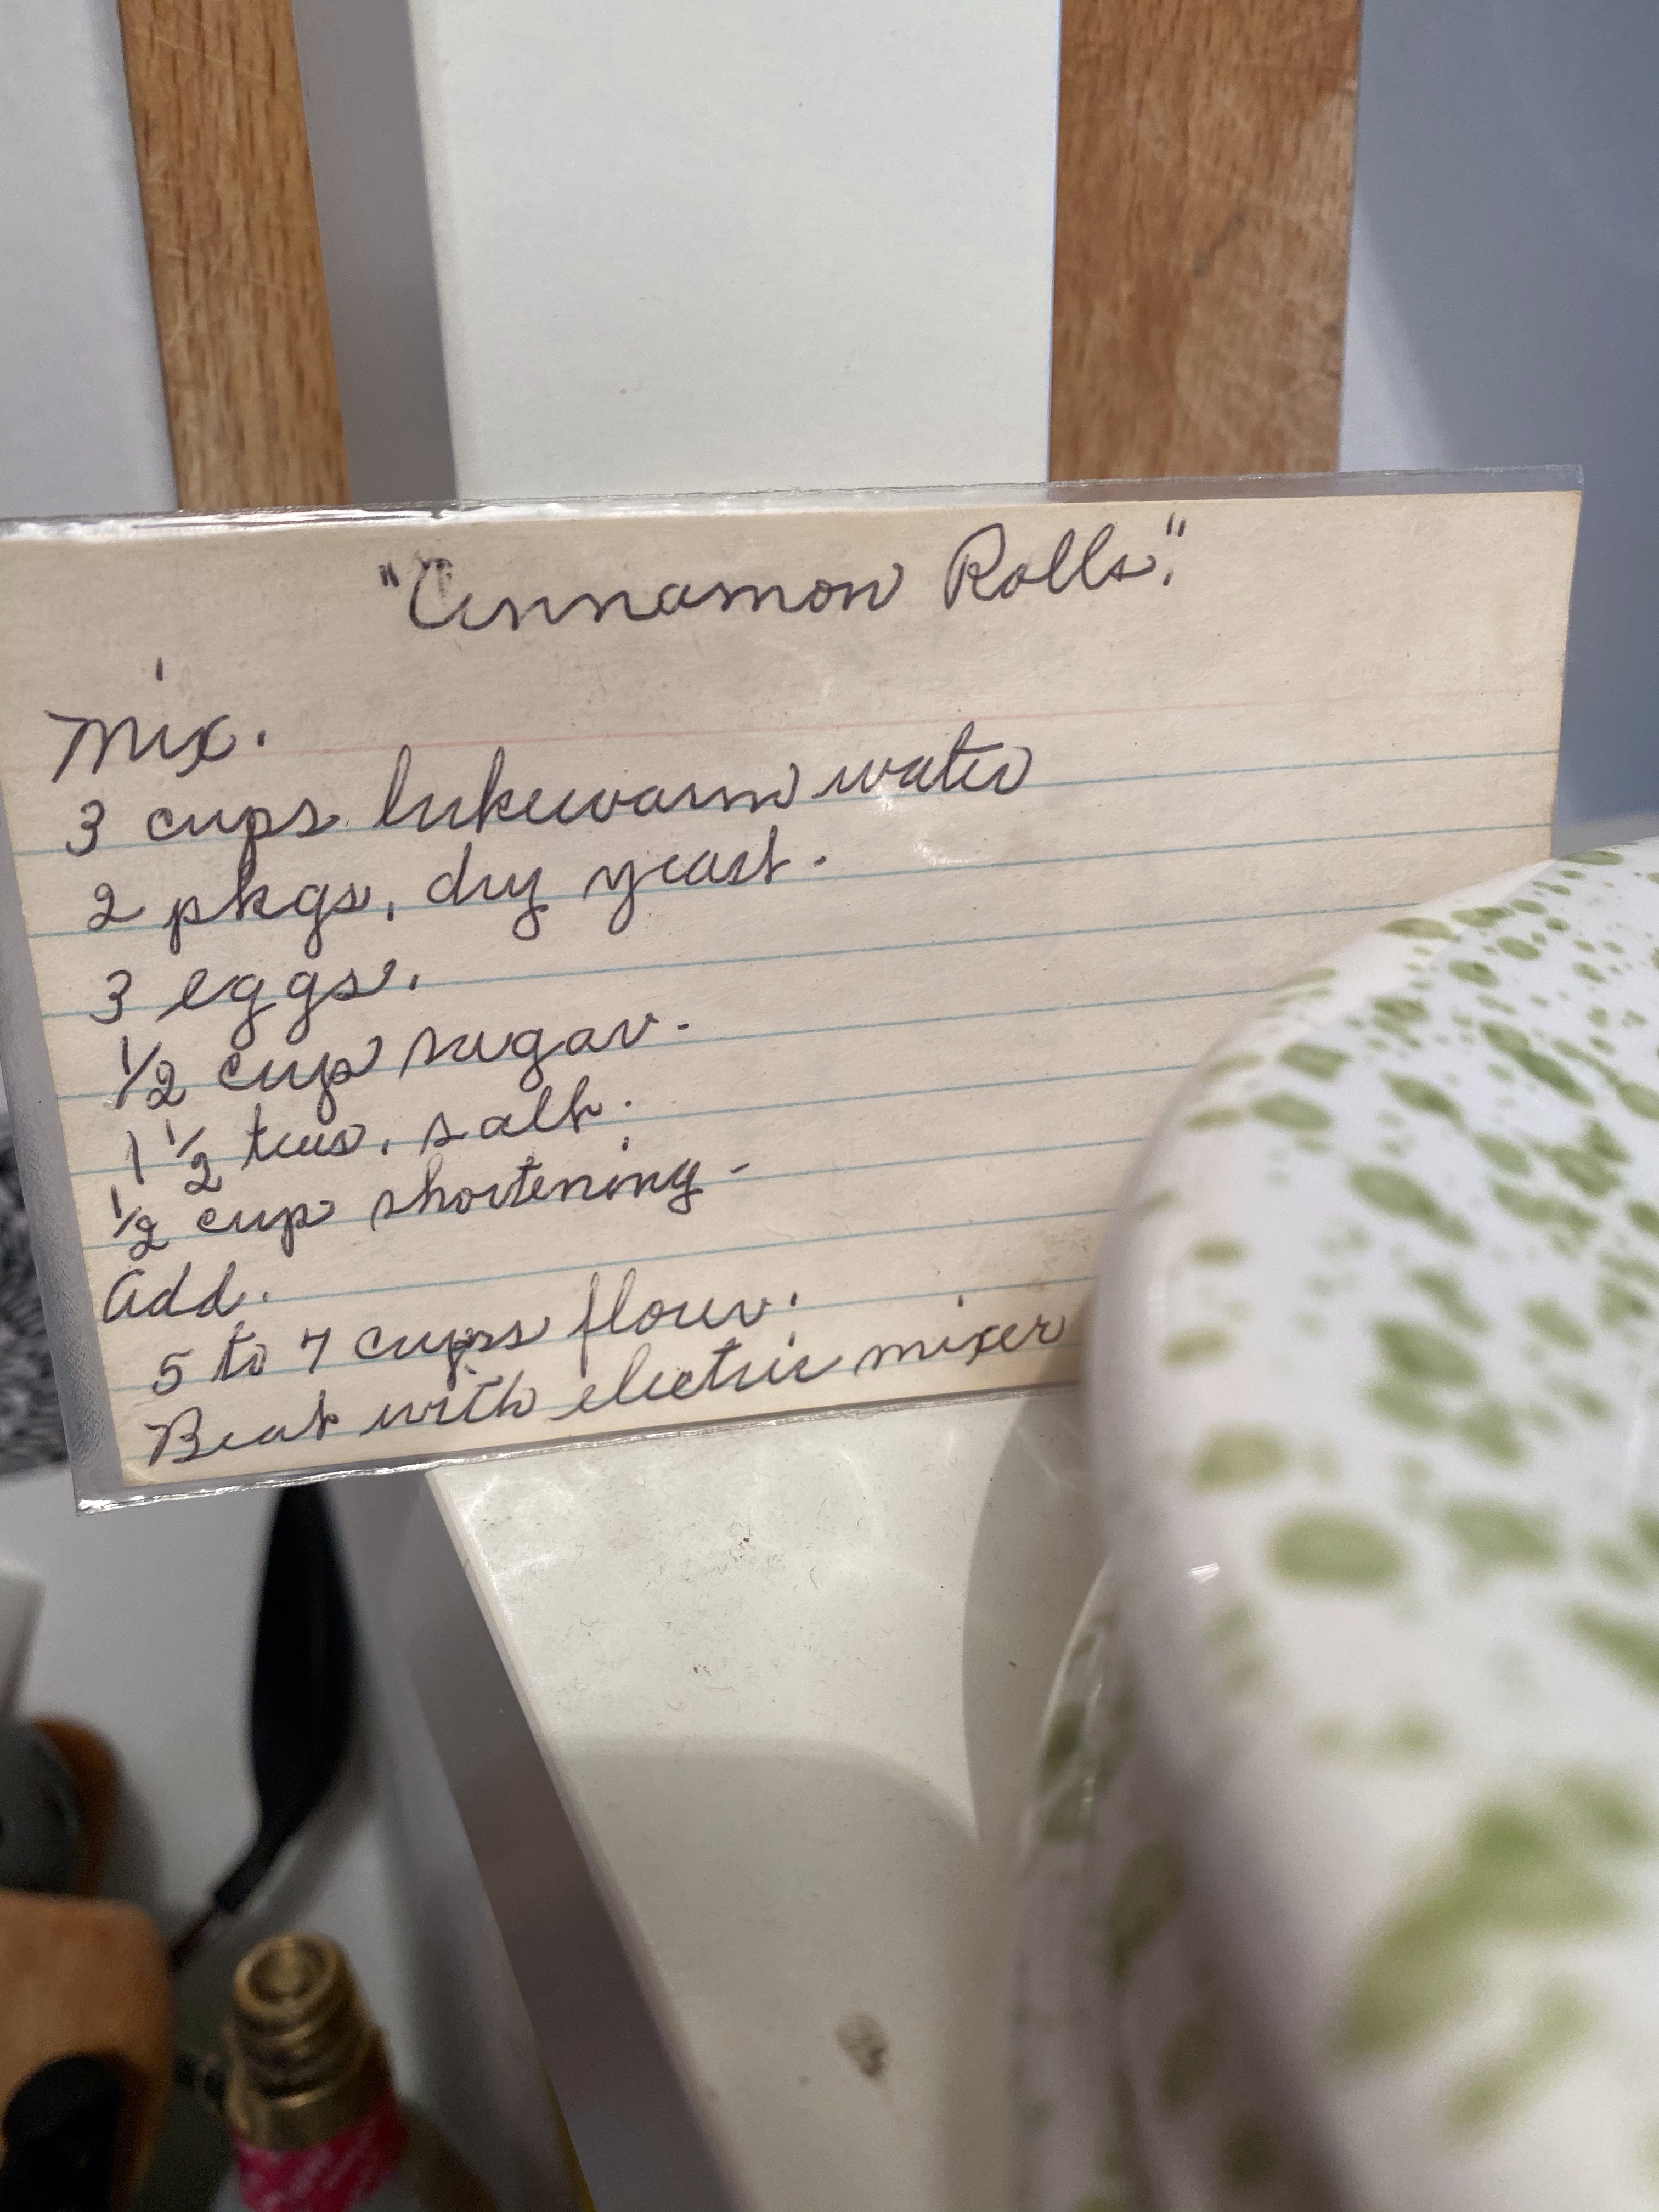 "Cinnamon Rolls."
Mix.
3 cups lukewarm water
2 pkgs. dry yeast.
3 eggs.
1/2 cup sugar.
1 1/2 teas. salt.
1/2 cup shortening.
Add.
5 to 7 cups flour.
Beat with electric mixer